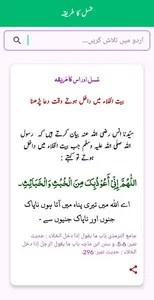 غسل کا طریقہ
اردو میں تلاش کریں...
غسل اور اس کا طریقہ
بیت الخلاء میں داخل ہوتے وقت دعا پڑھنا
سیّدنا انس رضی اللہ عنہ بیان کرتے ہیں کہ رسول
اللہ صلی اللہ علیہ وسلم جب بیت الخلاء میں داخل
ہوتے تو کہتے :
اَللّٰهُمَّ إِنِّىْ أَعُوْذُبِكَ مِنَ الْخُبُثِ وَالْخَبَائِثِ۔
اے اللہ میں تیری پناہ میں آتا ہوں ناپاک
جنوں اور ناپاک جنیوں سے -
جامع الترمذی باب ما یقول اذا دخل الخلاء : حدیث
نمبر: 5،6، و سنن ابن ماجہ باب ما یقول الرجل إذا دخل
الخلاء : حدیث نمبر: 296۔